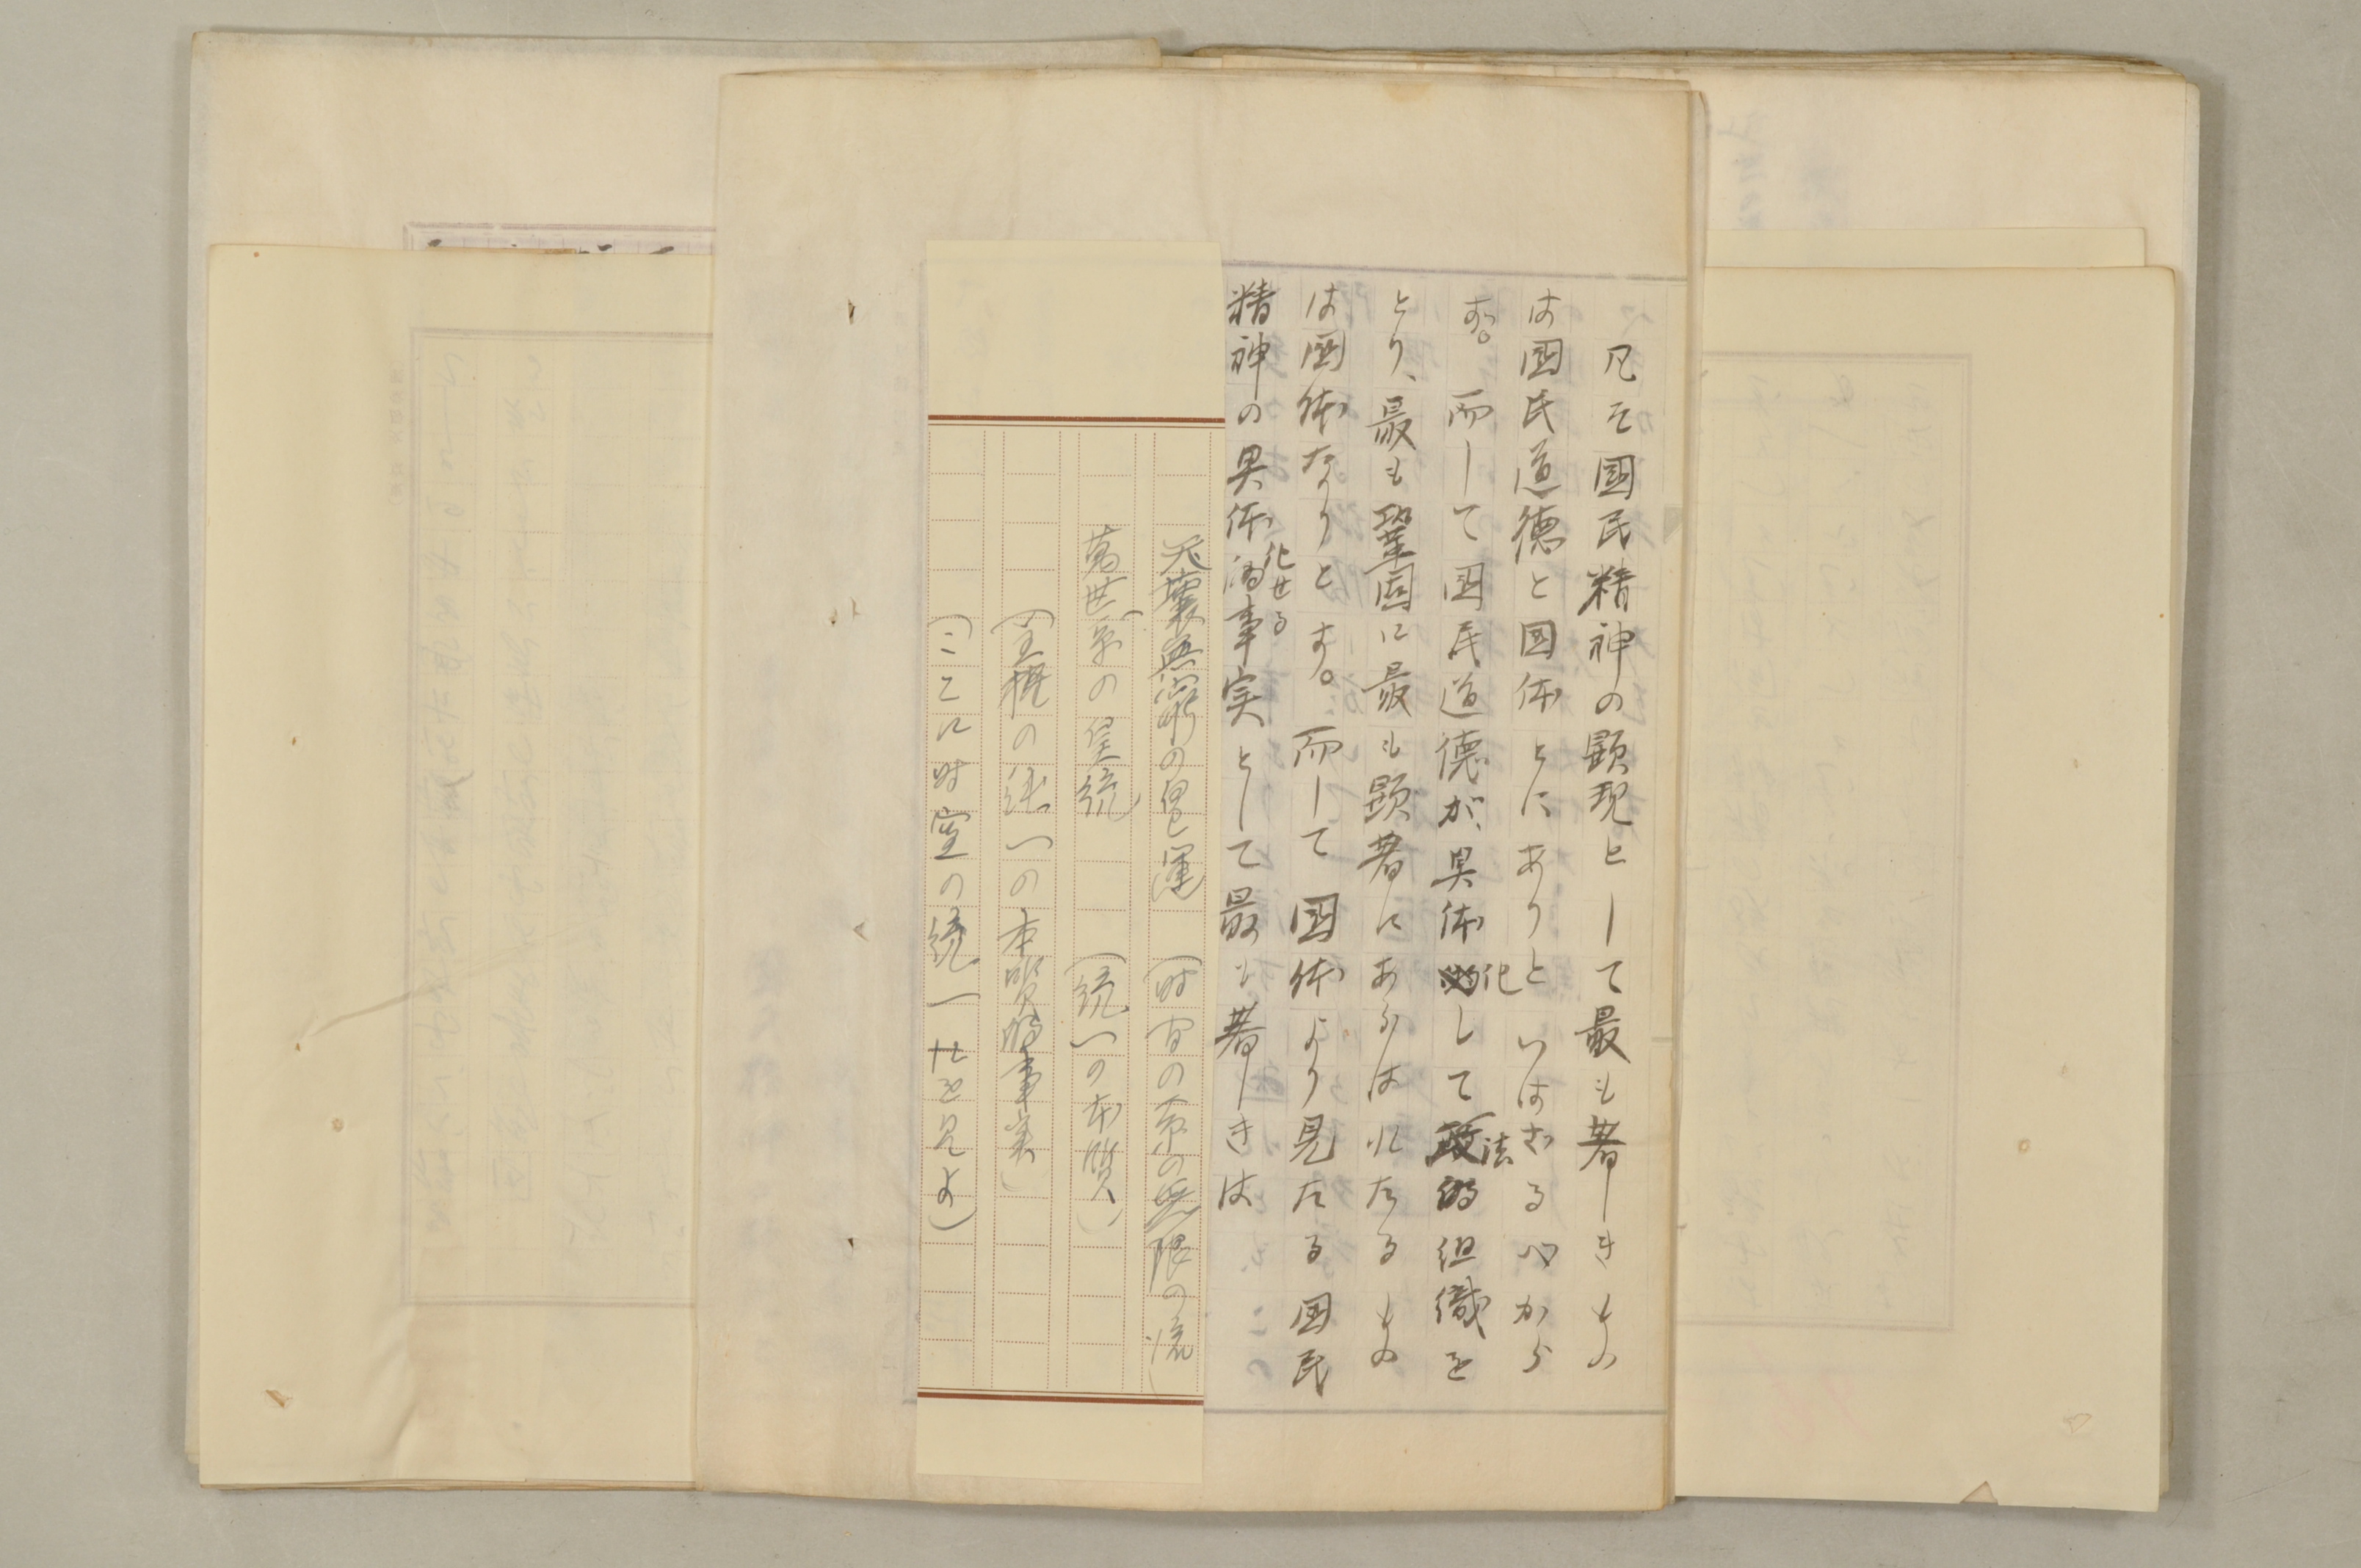 凡そ國民精神の顕現として最も著しきもの
は國民道徳と国体とにありといはざるべから
ず。而して国民道徳が、具体化して法的組織を
とり、最も鞏固に最も顕著にあらはれたるもの
は国体なりとす。而して国体より見たる国民
精神の具体化せる事実として最も著しきは
天壤無窮の皇運 (時間の系の無限の流)
萬世一系の皇統 (統一の本質)
(主権の統一の本質的事実)
(ここに時空の統一せを見よ)